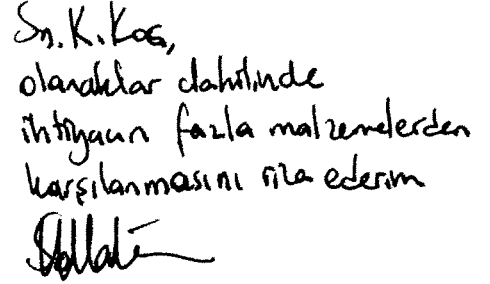 Sn. K. Koç,
olanaklar dahilinde
ihtiyacın fazla malzemelerden
karşılanmasını rica ederim